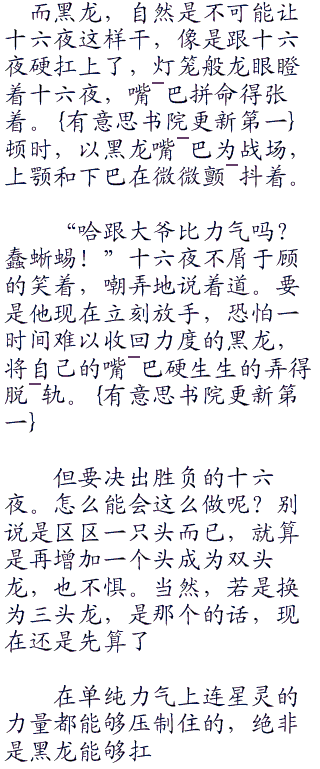 而黑龙，自然是不可能让
十六夜这样干，像是跟十六
夜硬扛上了，灯笼般龙眼瞪
着十六夜，嘴¯巴拼命得张
着。{有意思书院更新第一}
顿时，以黑龙嘴¯巴为战场，
上颚和下巴在微微颤¯抖着。
“哈跟大爷比力气吗？
蠢蜥蜴！”十六夜不屑于顾
的笑着，嘲弄地说着道。要
是他现在立刻放手，恐怕一
时间难以收回力度的黑龙，
将自己的嘴¯巴硬生生的弄得
脱¯轨。{有意思书院更新第
一}
但要决出胜负的十六
夜。怎么能会这么做呢？别
说是区区一只头而已，就算
是再增加一个头成为双头
龙，也不惧。当然，若是换
为三头龙，是那个的话，现
在还是先算了
在单纯力气上连星灵的
力量都能够压制住的，绝非
是黑龙能够扛